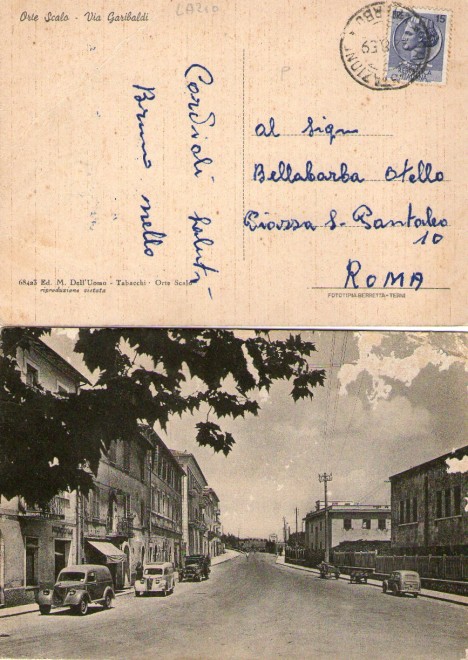 Orte Scalo - Via Garibaldi
LAZIO
15
STAZIONE
59
P
Cordiali saluti
Brunonello
al Sign
Bellabarba Otello
Piazza S. Pantaleo
10
ROMA
68423 Ed. M. Dell'Uomo - Tabacchi - Orte Scalo
riproduzione vietata
FOTOTIPIA BERRETTA - TERNI